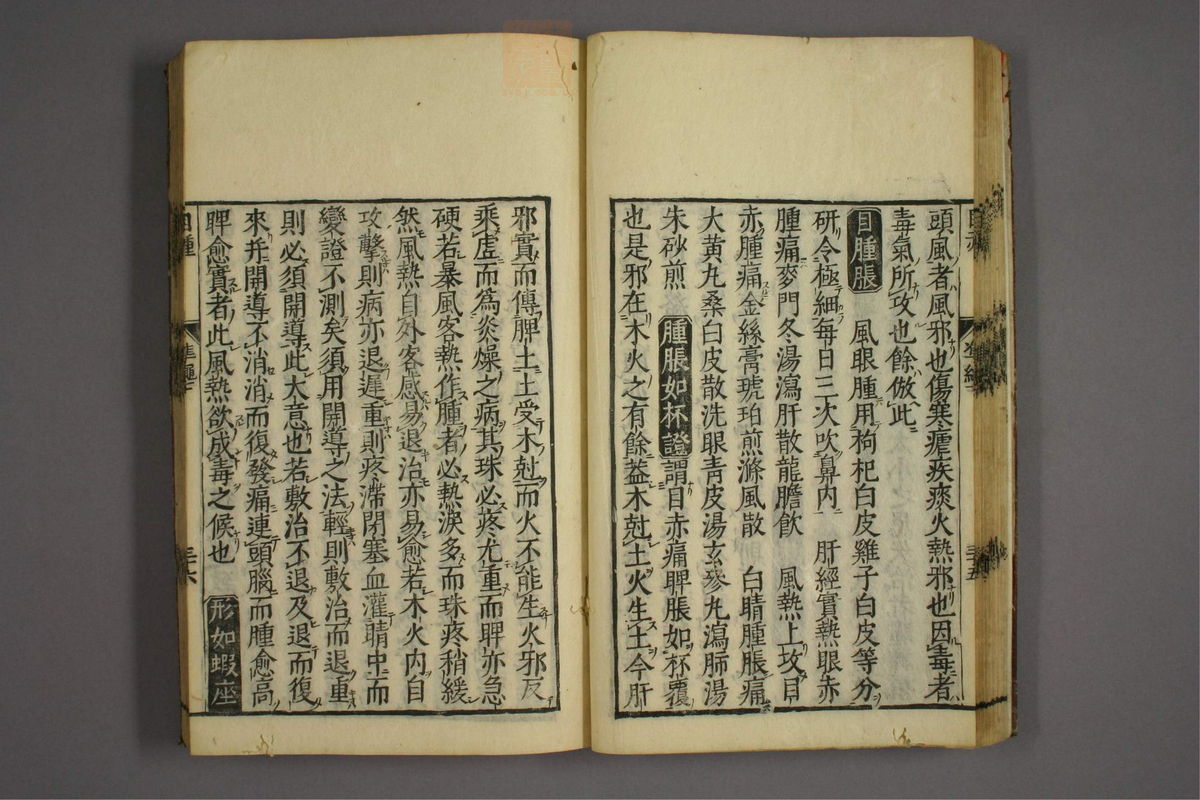 頭風者風邪也傷寒瘧疾痰火熱邪也因毒者
毒氣所攻也餘倣此
目腫脹 風眼腫用枸杞白皮雞子白皮等分
研令極細每日三次吹鼻內 肝經實熱眼赤
腫痛麥門冬湯瀉肝散龍膽飲 風熱上攻目
赤腫痛金絲膏琥珀煎滌風散 白睛腫脹痛
大黃丸桑白皮散洗眼靑皮湯玄參丸瀉肺湯
朱砂煎 腫脹如杯證謂目赤痛睥脹如杯覆
也是邪在木火之有餘葢木尅土火生土今肝
邪實而傳脾土土受木尅而火不能生火邪反
乘虛而爲炎燥之病其珠必疼尤重而睥亦急
硬若暴風客熱作腫者必熱淚多而珠疼稍緩
然風熱自外客感易退治亦易愈若木火內自
攻擊則病亦退遲重則疼滯閉塞血灌睛中而
變證不測矣須用開導之法輕則敷治而退重
則必須開導此大意也若敷治不退及退而復
來并開導不消消而復發痛連頭腦而腫愈高
睥愈實者此風熱欲成毒之候也 形如蝦座
目腫 準繩 三十六
三十五